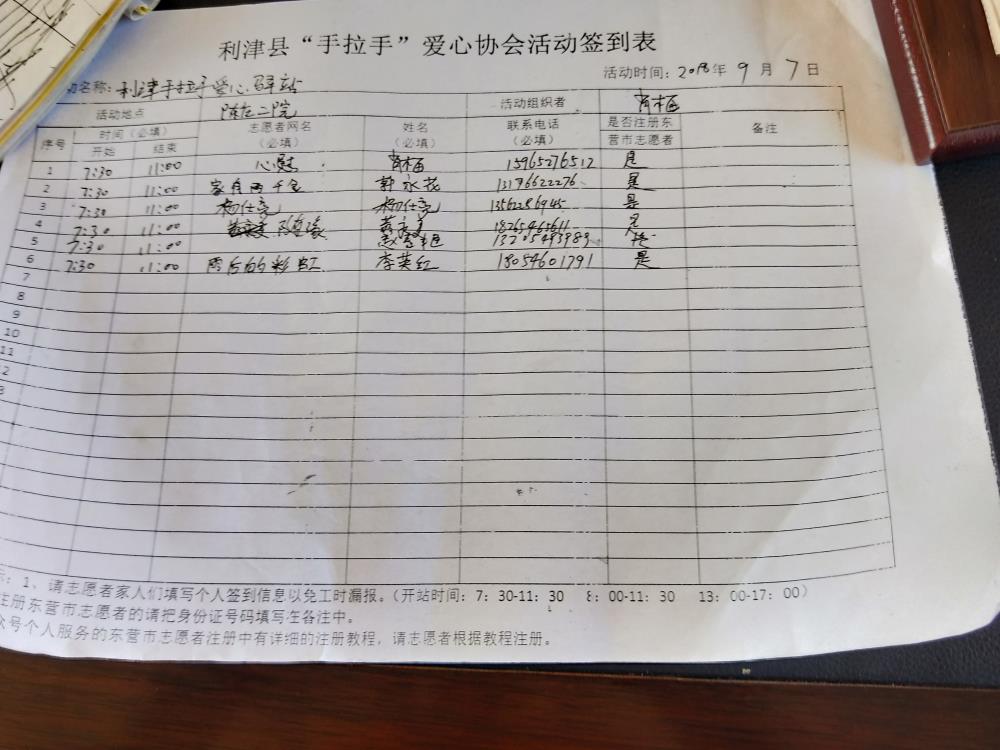 利津县“手拉手”爱心协会活动签到表
名称：利津手拉手爱心驿站 活动时间：2018年9月7日
活动地点 二院 活动组织者
序号 时间（必填） 志愿者网名（必填） 姓名（必填） 联系电话（必填） 是否注册东营市志愿者 备注
开始 结束
1 7:30 11:00 心慰 15965276512 是
2 7:30 11:00 家有两千金 郭永花 13176622276 是
3 7:30 11:00 杨仕亮 杨仕亮 13562286945 是
4 7:30 11:00 是
5 7:30 11:00 13205493989
6 7:30 11:00 雨后的彩虹 李英红 18054601791 是
7
8
9
10
11
2
3
：1、请志愿者家人们填写个人签到信息以免工时漏报。（开站时间：7：30-11：30 8：00-11：30 13：00-17：00）
注册东营市志愿者的请把身份证号码填写在各注中。
众号个人服务的东营市志愿者注册中有详细的注册教程，请志愿者根据教程注册。